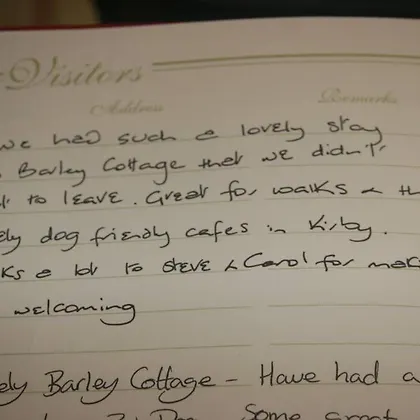 Visitors
Address Remarks
we had such a lovely stay
Barley Cottage that we didn't
to leave. Great for walks & th
ely dog friendly cafes in Kirby.
ks a lot to Steve & Carol for mak
welcoming
ely Barley Cottage - Have had a
Some great